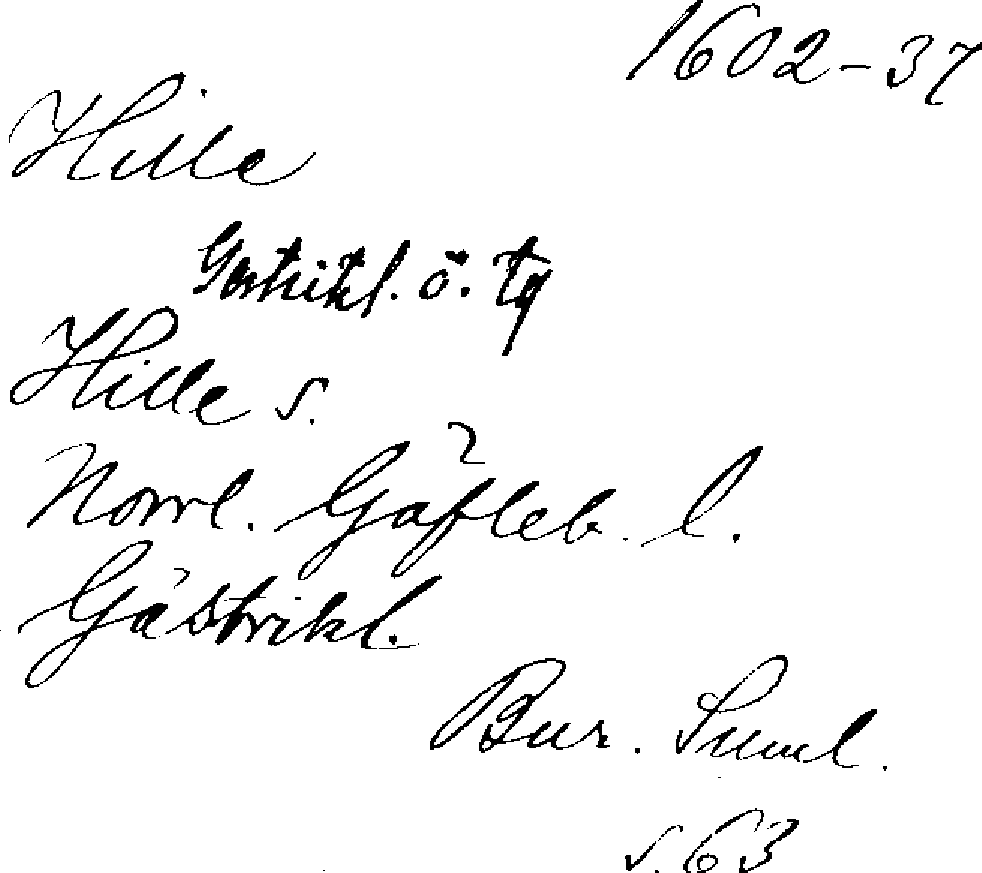 1602-37
Hille
Gästrikl. ö. tg
Hille s.
Norrl. Gäfleb. l.
Gästrikl.
Bur. Suml.
s. 63